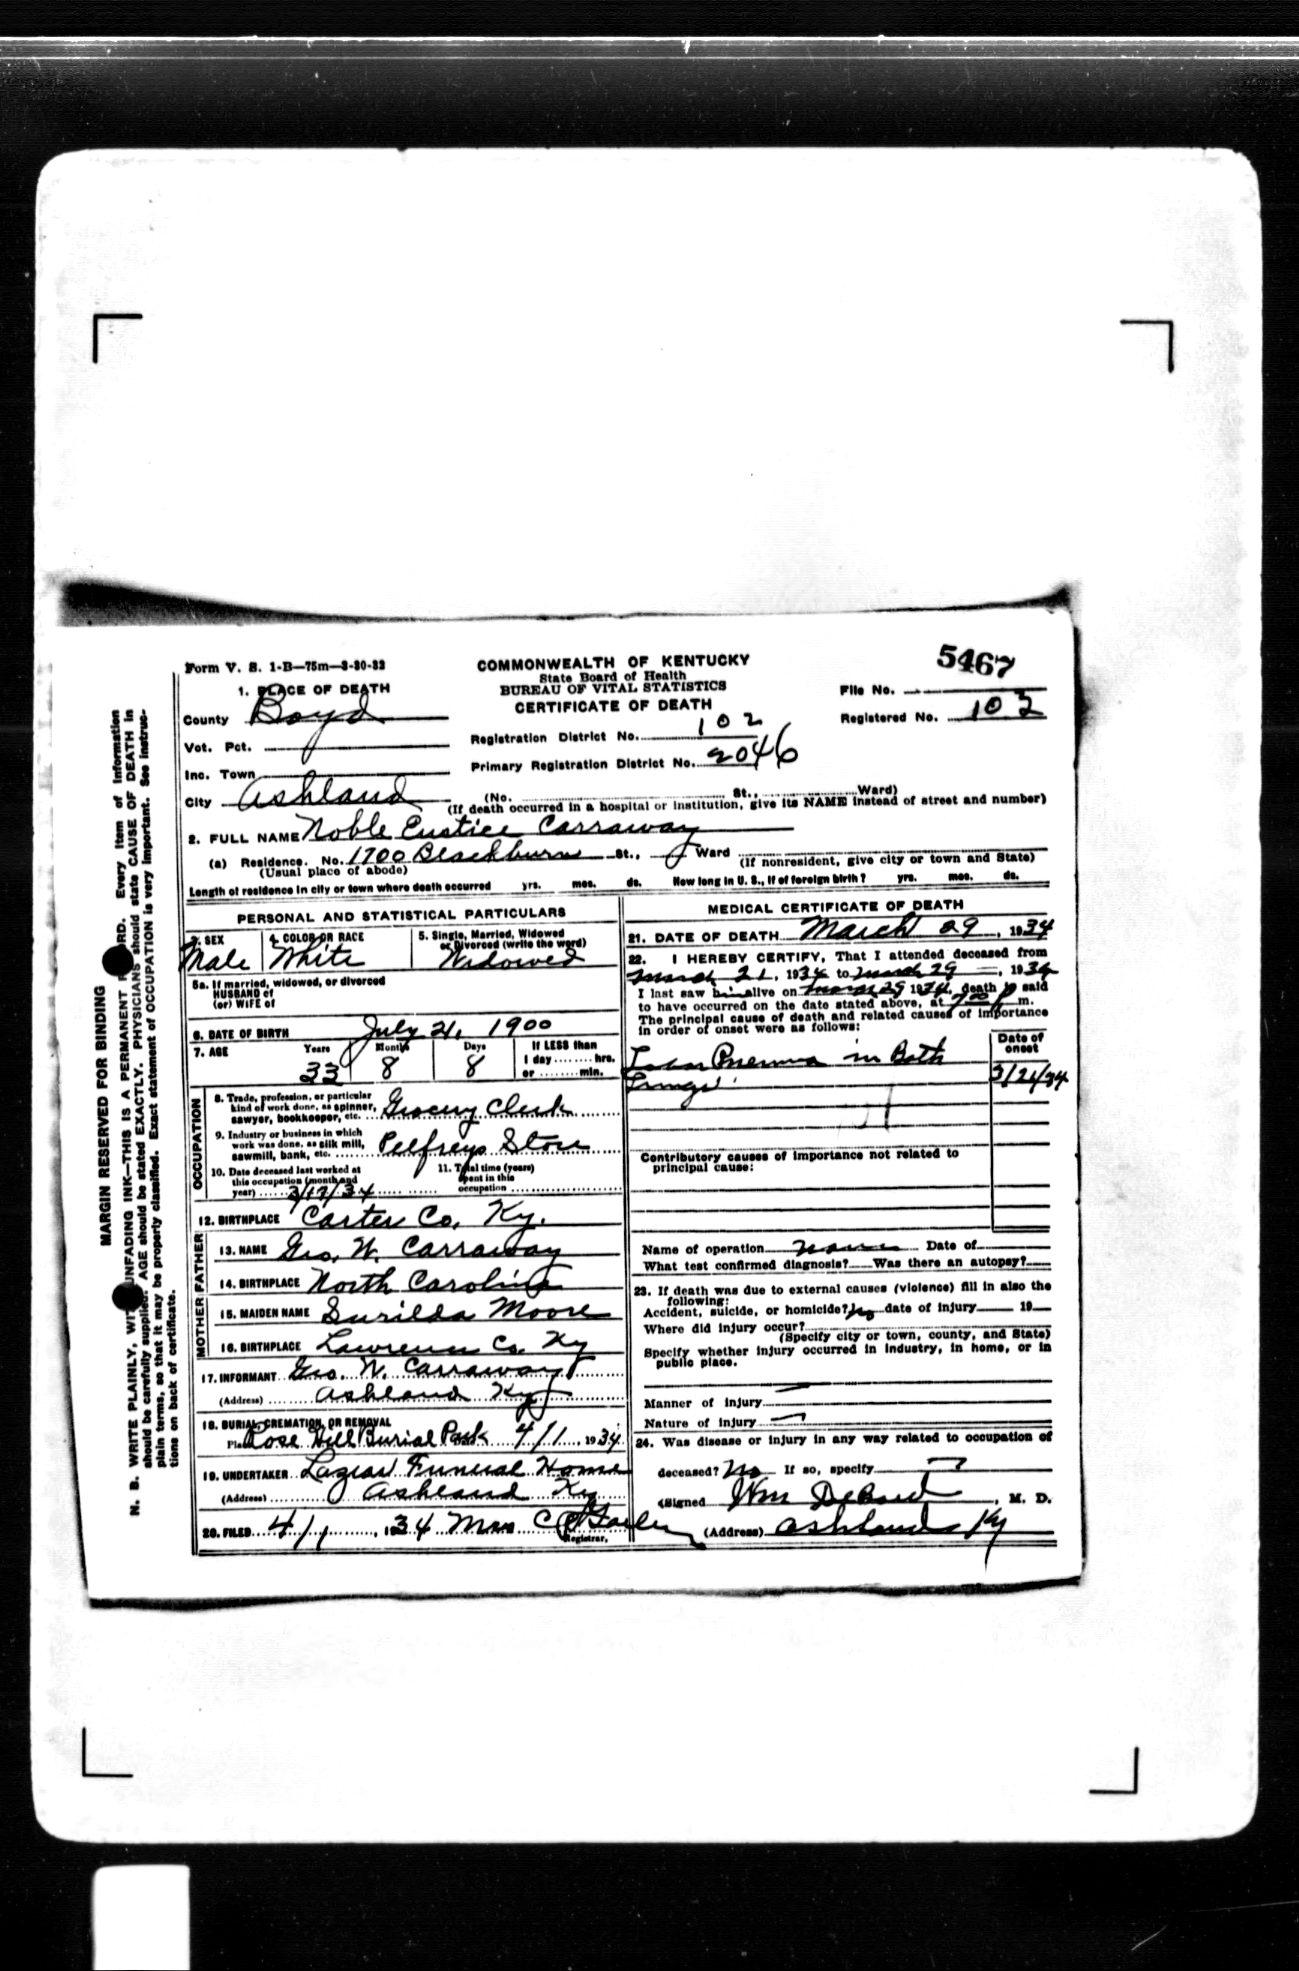 Form V. S. 1-B—75m—3-30-32
COMMONWEALTH OF KENTUCKY
State Board of Health
BUREAU OF VITAL STATISTICS
CERTIFICATE OF DEATH
5467
File No.
Registered No. 103
1. PLACE OF DEATH
County Boyd
Vot. Pct.
Inc. Town
City Ashland
Registration District No. 102
Primary Registration District No. 2046
(No. St., Ward)
(If death occurred in a hospital or institution, give its NAME instead of street and number)
2. FULL NAME Noble Eustice Carraway
(a) Residence. No. 1700 Blackburn St., Ward
(Usual place of abode) (If nonresident, give city or town and State)
Length of residence in city or town where death occurred yrs. mos. ds. How long in U. S., if of foreign birth? yrs. mos. ds.
PERSONAL AND STATISTICAL PARTICULARS
3. SEX 4. COLOR OR RACE 5. Single, Married, Widowed
or Divorced (write the word)
Male White Widowed
5a. If married, widowed, or divorced
HUSBAND of
(or) WIFE of
6. DATE OF BIRTH July 21, 1900
7. AGE Years Months Days If LESS than
1 day hrs.
33 8 8 or min.
OCCUPATION
8. Trade, profession, or particular
kind of work done, as spinner,
sawyer, bookkeeper, etc. Grocery Clerk
9. Industry or business in which
work was done, as silk mill,
sawmill, bank, etc. Pelfreys Store
10. Date deceased last worked at
this occupation (month and
year) 3/17/34
11. Total time (years)
spent in this
occupation
12. BIRTHPLACE Carter Co, Ky.
FATHER
13. NAME Geo. W. Carraway
14. BIRTHPLACE North Carolina
MOTHER
15. MAIDEN NAME Surilda Moore
16. BIRTHPLACE Lawrence Co. Ky
17. INFORMANT Geo. W. Carraway
(Address) Ashland Ky
18. BURIAL, CREMATION, OR REMOVAL
Place Rose Hill Burial Park 4/1, 1934
19. UNDERTAKER Lazear Funeral Home
(Address) Ashland Ky
20. FILED 4/1, 1934 Mrs C
Registrar.
MEDICAL CERTIFICATE OF DEATH
21. DATE OF DEATH March 29, 1934
22. I HEREBY CERTIFY, That I attended deceased from
March 21, 1934 to March 29, 1934
I last saw him alive on March 29 1934, death is said
to have occurred on the date stated above, at 7:00 P m.
The principal cause of death and related causes of importance
in order of onset were as follows:
Date of
onset
Lobar Pneumona in Both
Lungs 3/21/34
Contributory causes of importance not related to
principal cause:
Name of operation none Date of
What test confirmed diagnosis? Was there an autopsy?
23. If death was due to external causes (violence) fill in also the
following:
Accident, suicide, or homicide? No date of injury 19
Where did injury occur?
(Specify city or town, county, and State)
Specify whether injury occurred in industry, in home, or in
public place.
Manner of injury
Nature of injury
24. Was disease or injury in any way related to occupation of
deceased? No If so, specify
(Signed Wm DeBord, M. D.
(Address) Ashland Ky
MARGIN RESERVED FOR BINDING
N. B. WRITE PLAINLY, UNFADING INK—THIS IS A PERMANENT Every item of information
should be carefully supplied. AGE should be stated EXACTLY. PHYSICIANS should state CAUSE OF DEATH in
plain terms, so that it may be properly classified. Exact statement of OCCUPATION is very important. See instruc-
tions on back of certificate.